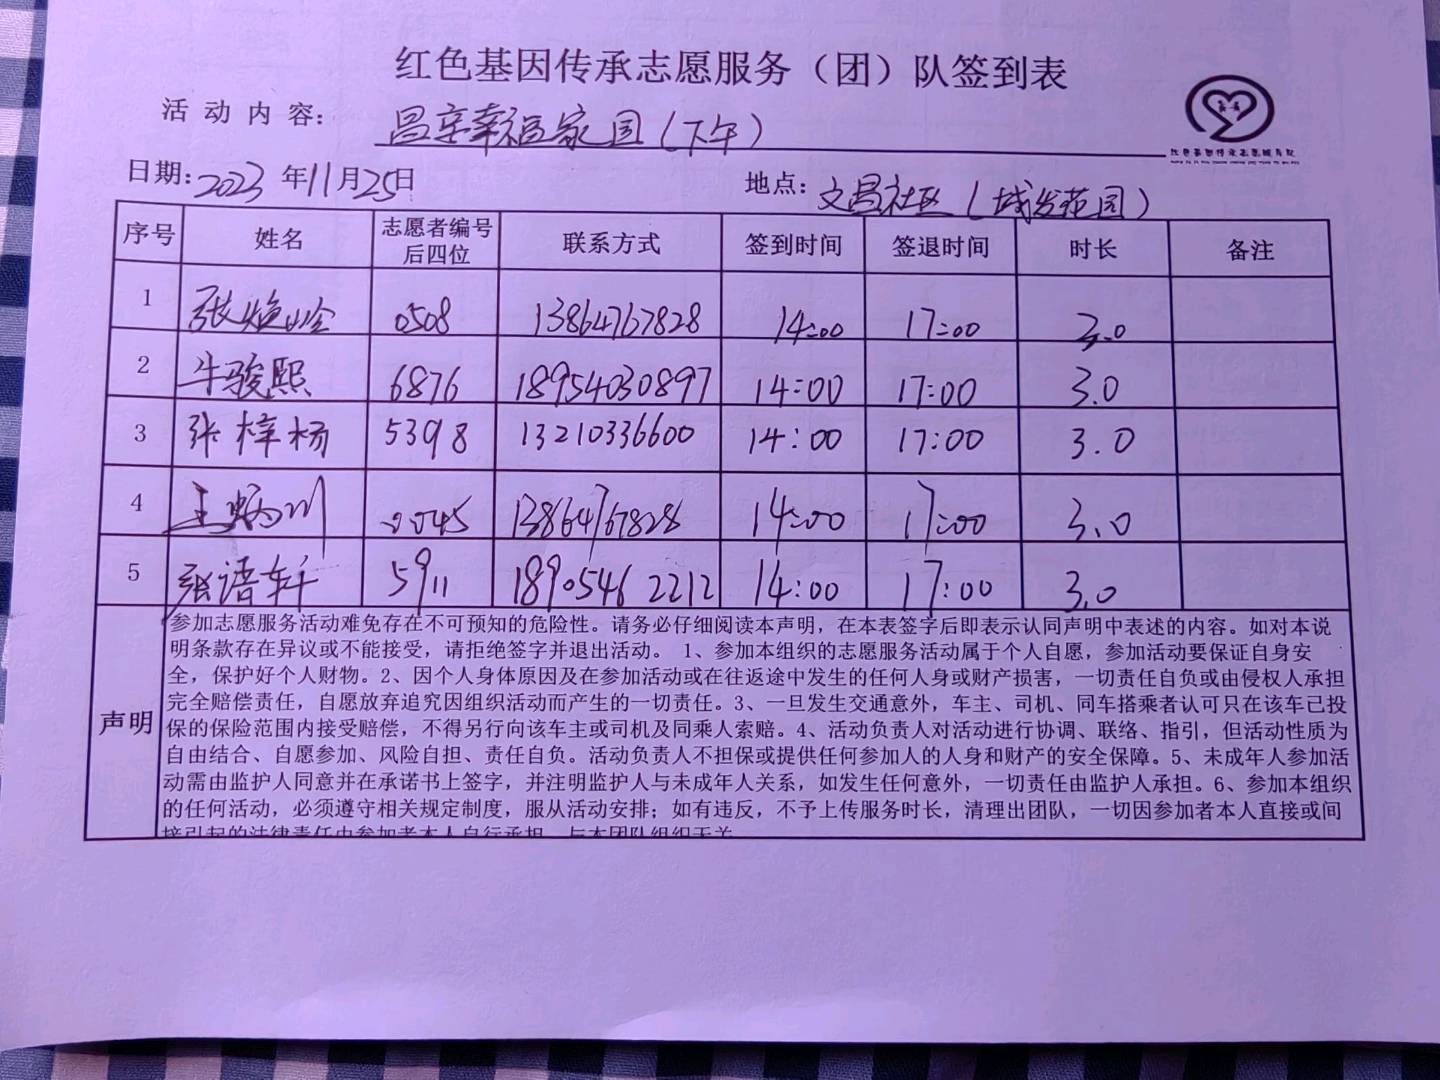 红色基因传承志愿服务（团）队签到表
活动内容：昌幸福家园（下午）
日期：2023年11月25日 地点：文昌社区（城发范园）
序号 姓名 志愿者编号后四位 联系方式 签到时间 签退时间 时长 备注
1 张焕岭 0508 13864767828 14:00 17:00 3.0
2 牛骏熙 6876 18954030897 14:00 17:00 3.0
3 张梓杨 5398 13210336600 14:00 17:00 3.0
4 王炳川 0045 13864767828 14:00 17:00 3.0
5 张语轩 5911 18905462212 14:00 17:00 3.0
声明
参加志愿服务活动难免存在不可预知的危险性。请务必仔细阅读本声明，在本表签字后即表示认同声明中表述的内容。如对本说
明条款存在异议或不能接受，请拒绝签字并退出活动。 1、参加本组织的志愿服务活动属于个人自愿，参加活动要保证自身安
全，保护好个人财物。2、因个人身体原因及在参加活动或在往返途中发生的任何人身或财产损害，一切责任自负或由侵权人承担
完全赔偿责任，自愿放弃追究因组织活动而产生的一切责任。3、一旦发生交通意外，车主、司机、同车搭乘者认可只在该车已投
保的保险范围内接受赔偿，不得另行向该车主或司机及同乘人索赔。4、活动负责人对活动进行协调、联络、指引，但活动性质为
自由结合、自愿参加、风险自担、责任自负。活动负责人不担保或提供任何参加人的人身和财产的安全保障。5、未成年人参加活
动需由监护人同意并在承诺书上签字，并注明监护人与未成年人关系，如发生任何意外，一切责任由监护人承担。6、参加本组织
的任何活动，必须遵守相关规定制度，服从活动安排；如有违反，不予上传服务时长，清理出团队，一切因参加者本人直接或间
接引起的法律责任由参加者本人自行承担，与本团队组织无关